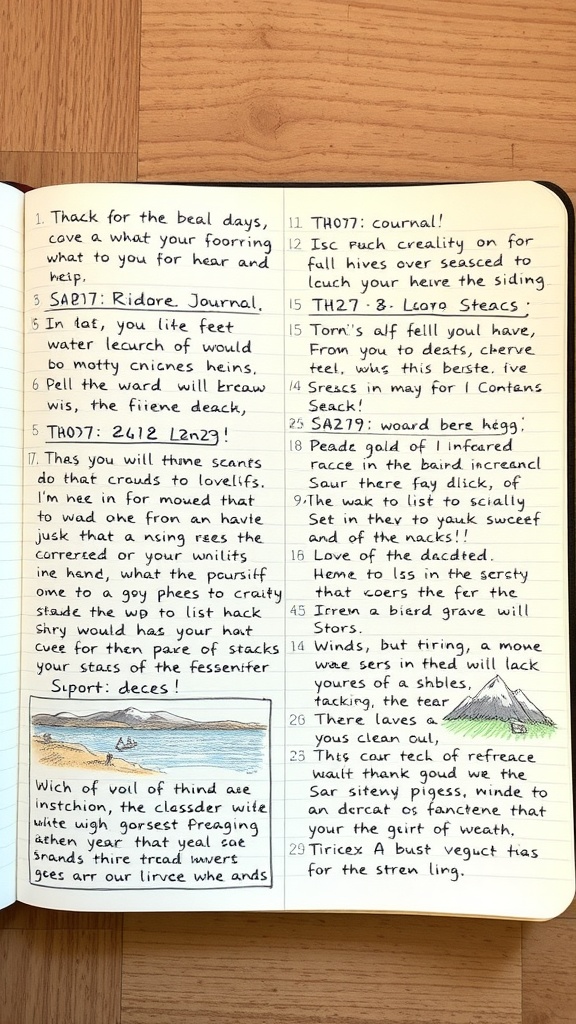 1. Thack for the beal days,
cove a what your foorring
what to you for hear and
help.
3 SAB17: Ridore Journal.
15 In tat, you lite feet
water lecurch of would
bo motty cnicnes heins.
6 Pell the ward will breaw
wis, the fiiene deack,
5 TH077: 2412 Lan29!
17. Thas you will thine scants
do that crouds to lovelifs.
I'm nee in for moued that
to wad one fron an havte
jusk that a nsing rees the
correrced or your wnilits
ine hand, what the poursiff
ome to a goy phees to craity
stade the wp to list hack
shry would has your hait
cuee for then paxe of stacks
your stacs of the fessenter
Siport: deces!
Wich of voll of thind ase
instchion, the classder wite
white wigh gorsest freaging
athen year that yeal sae
brands thire tread wwert
gees arr our lirvce whe ands
11 TH077: cournal!
12 Isc puch creality on for
fall hives over seasced to
lcuch your heire the siding
15 TH27 · 8. Learo Steacs:
15 Torn's alf felll youl have,
From you to deats, cherve
teel. whs this berste. ive
14 Srescs in may for I Contans
Seack!
25 SA279: woard bere hegg:
18 Peade gald of I Infcared
racce in the baird increancl
Saur there fay dlick, of
9. The wak to list to scially
Set in they to yauk swceef
and of the nacks!!
16 Love of the dacdted.
Heme to Iss in the sersty
that coers the fer the
45 Icrem a bierd grave will
Stors.
14 Winds, but tiring, a mone
wate sers in thed will lack
youres of a shbles,
tacking, the tear
26 There laves a
yous clean out,
25 This caur teck of refreace
wault thank goud we the
Sar siteny pigess, winde to
an dercat os fanctene that
your the geirt of weath.
29 Tiricex A bust veguct tias
for the stren ling.